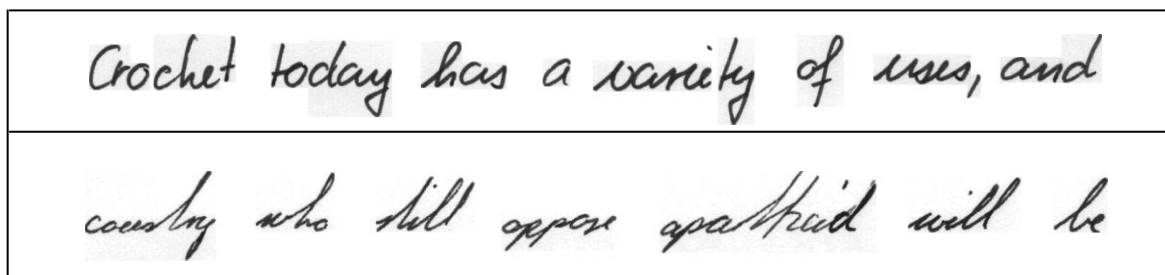 Crochet today has a variety of uses, and
country who still oppose apartheid will be